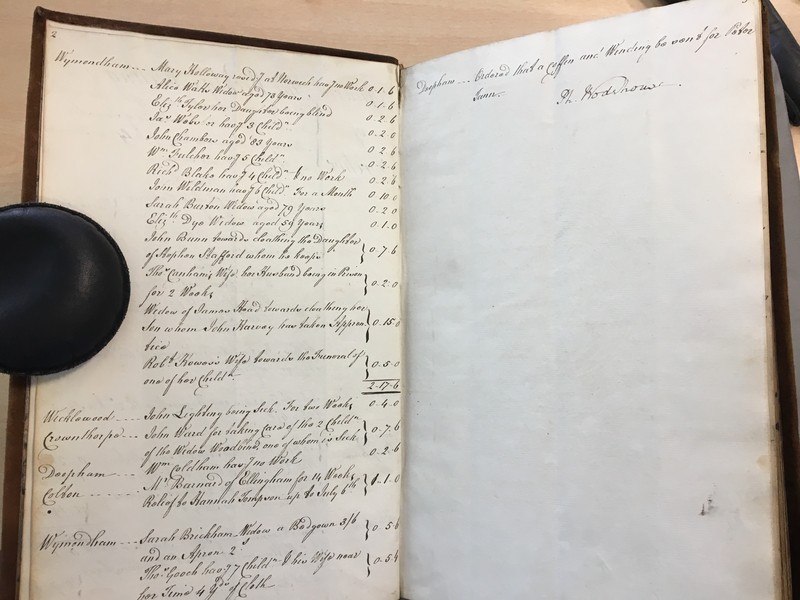 2
Wymondham --- Mary Holloway resid.g at Norwich hav.g no Work 0-1-6
Alice Watts Widow aged 73 Years 0-1-6
Eliz.th Tylor her Daughter being blind 0-2-6
Ja.s hav.g 3 Child.n 0-2-0
John Chambers aged 83 Years 0-2-6
W.m Fulcher hav.g 5 Child.n 0-2-6
Rich.d Blake hav.g 4 Child.n & no Work 0-2-6
John Wildman hav.g 6 Child.n For a Month 0-10-0
Sarah Burton Widow aged 79 Years 0-2-0
Eliz.th Dye Widow aged 59 Years 0-1-0
John Bunn towards cloathing the Daughter
of Stephen Stafford whom he keeps 0-7-6
Tho.s Canham's Wife her Husband being in Prison
for 2 Weeks 0-2-0
Widow of James Head towards cloathing her
Son whom John Harvey has taken Appren 0-15-0
tice
Rob.t Wife towards the Funeral of
one of her Child.n 0-5-0
2-17-6
Wicklewood --- John Lighting being Sick. For two Weeks 0-4-0
Crownthorpe --- John Ward for taking Care of the 2 Child.n
of the Widow one of whom is Sick 0-7-6
Deopham --- W.m Coldham hav.g no Work 0-2-6
Colton ---- M.r Barnard of Ellingham for 14 Weeks
Relief to Hannah Tompson up to July 6.th 1-1-0
Wymondham --- Sarah Brickham Widow a Bedgown 3/6
and an Apron 2.s 0-5-6
Tho.s Gooch hav.g 7 Child.n & his Wife near
her Time 4 Y.ds of Cloth 0-5-4
3
Deopham --- Ordered that a Coffin and Winding be sent for Peter
Ph. Wodehouse